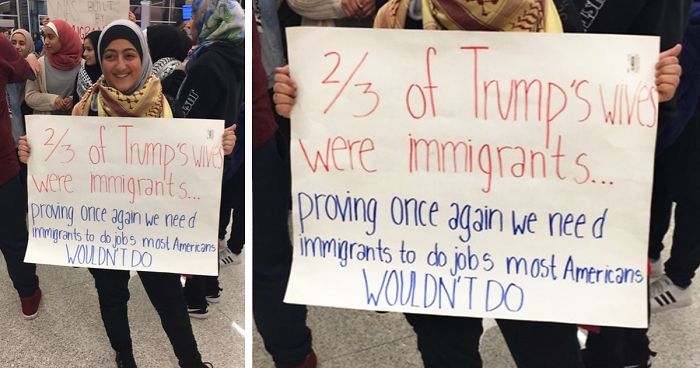 2/3 of Trump's wives
were immigrants...
proving once again we need
immigrants to do jobs most Americans
WOULDN'T DO
2/3 of Trump's wives
were immigrants...
proving once again we need
immigrants to do jobs most Americans
WOULDN'T DO